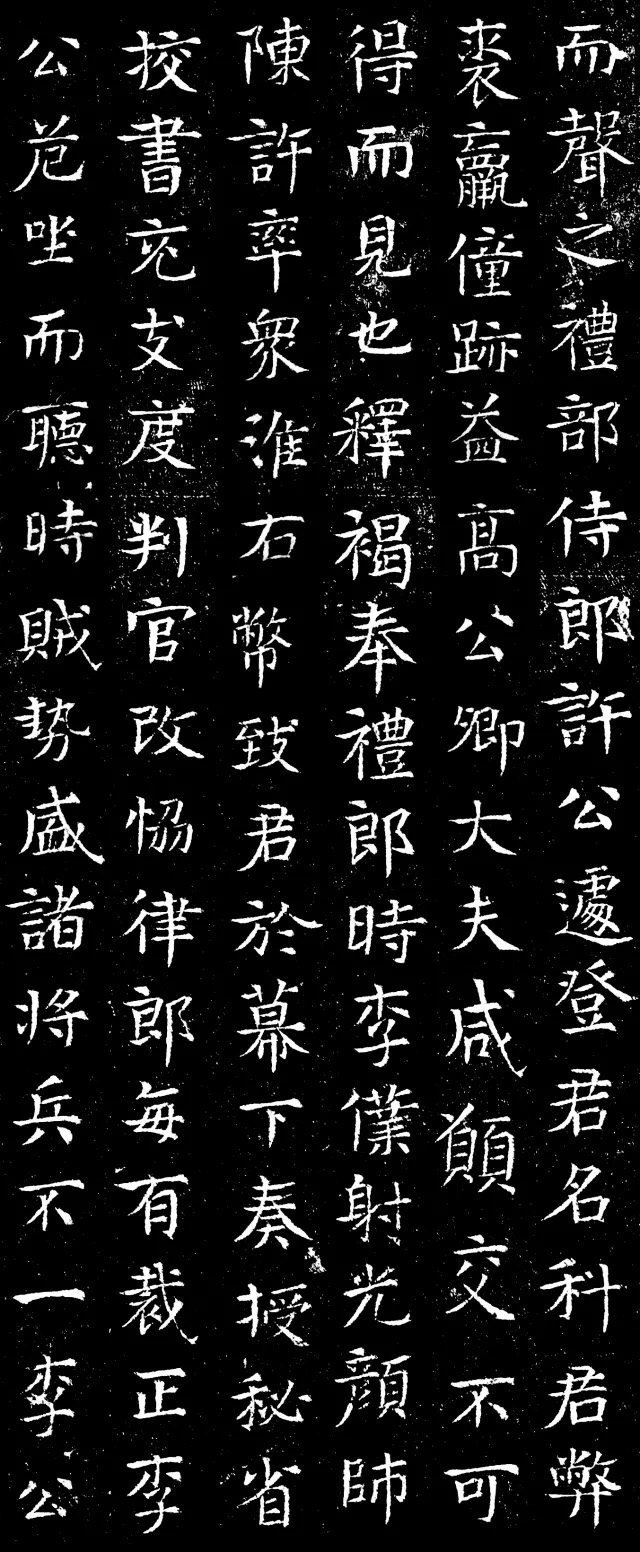 而聲之禮部侍郎許公遽登君名科君弊
裘羸僮跡益高公卿大夫咸願交不可
得而見也釋褐奉禮郎時李僕射光顏師
陳許率衆淮右幣致君於幕下奏授秘省
挍書充支度判官改恊律郎每有裁正李
公危坐而聽時賊勢盛諸将兵不一李公